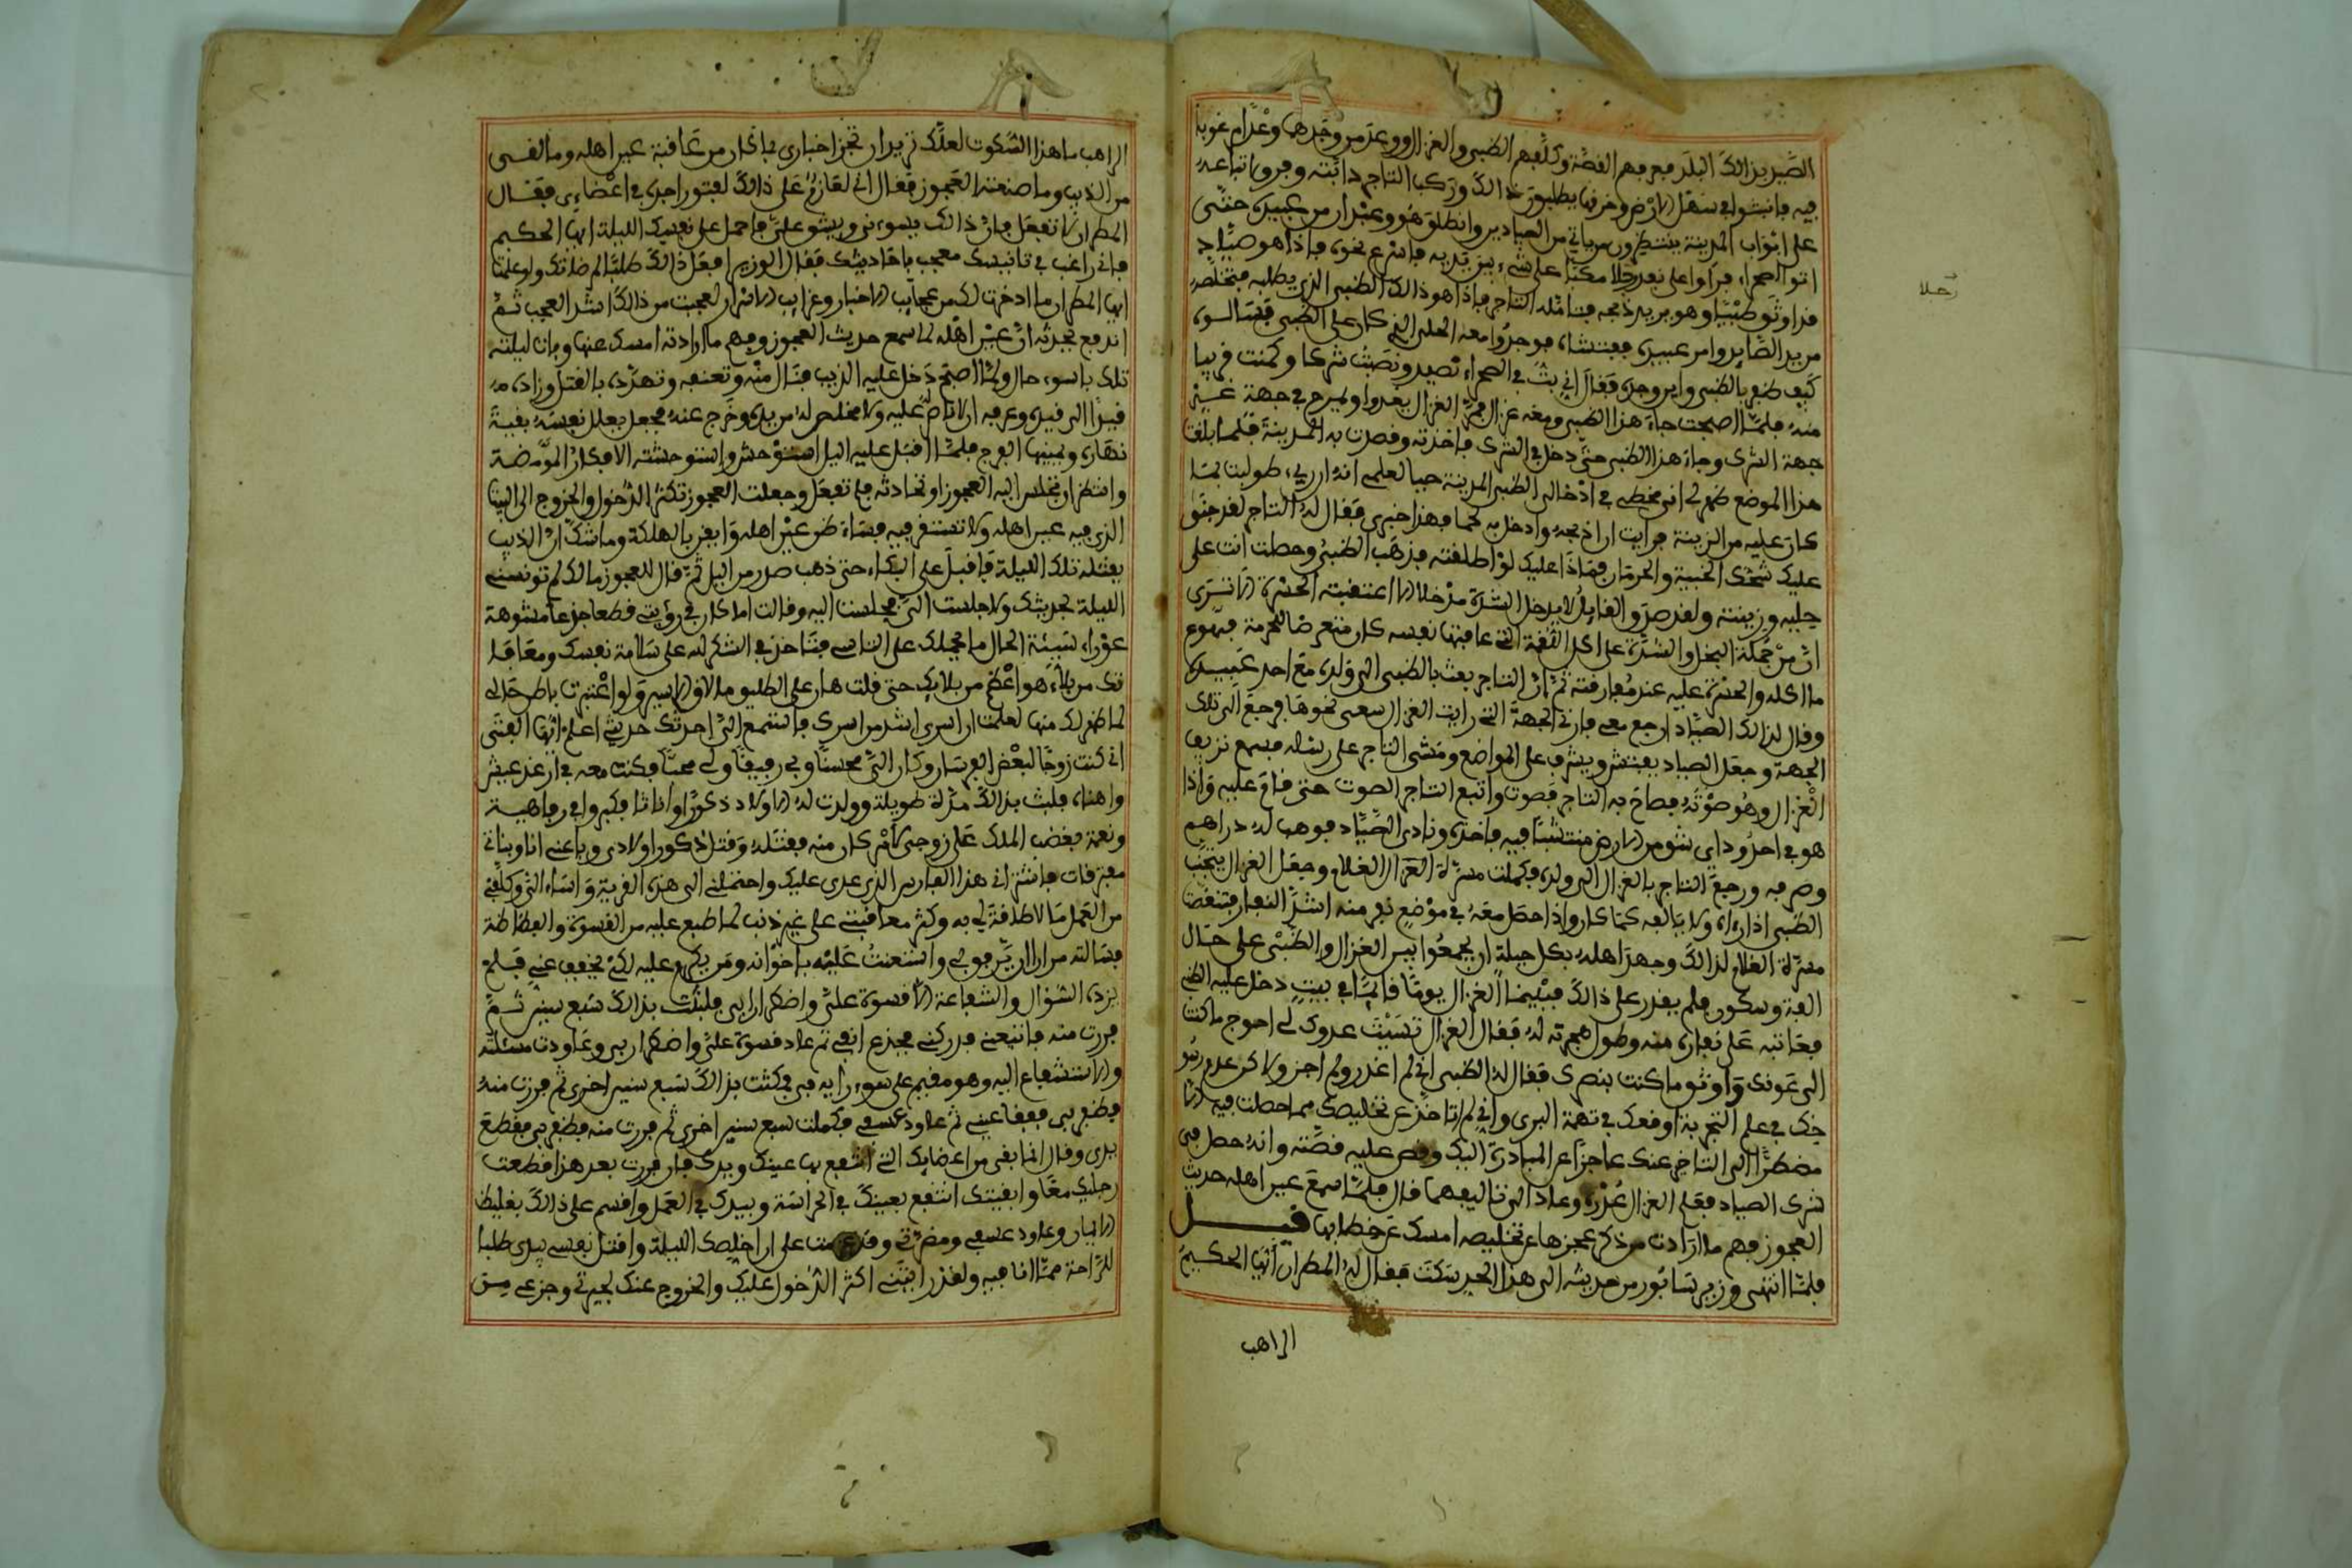 الصيد بذالك البلد فعرفهم القصة وكلفهم الظبي والغزال ووعد من وجدهما وعدا مرغوبا
فيه فانبثوا في سهل الارض وحزنها يطلبون ذالك وركب التاجر دابته وفرق اتباعه
على ابواب المدينة ينتظرون من ياتي من الصيادين وانطلق هو وعبدان من عبيده حتى
اتوا الصحراء فراوا على بعد رجلا مكبا على شيء بين يديه فاسرع نحوه فاذا هو صياد
رجلا
قد اوثق ظبيا وهو يريد ذبحه فتامله التاجر فاذا هو ذالك الظبي الذي يطلبه فخلصه
من يد الصايد وامر عبيده ففتشاه فوجدوا معه الحلي الذي كان على الظبي فسالوه
كيف ظفر بالظبي واين وجده فقال اني بت في الصحراء تصيد ونصبت شركا وكمنت قريبا
منه فلما اصبحت جاء هذا الظبي ومعه غزال فمر الغزال يغدوا ويمرح في جهة غير
جهة الشرك وجاء هذا الظبي حتى دخل في الشرك فاخذته وقصدت به المدينة فلما بلغت
هذا الموضع ظهر لي اني مخطي في ادخالي الظبي المدينة حيا لعلمي انه ان ريء طولبت بما
كان عليه من الزينة فرايت ان اذبحه وادخل به لحما فهذا خبري فقال له التاجر لقد جنى
عليك شحك الخيبة والحرمان فماذا عليك لو اطلقته فذهب الظبي وحصلت انت على
حليه وزينته ولقد صدق القايل لا يدخل الشره مدخلا الا اعتقبته الحسرة الا ترى
ان من حملة البخل والشره على اكل اللقمة التي عافتها نفسه كان متعرضا لحرمة فهوع
ما اكله والحسرة عليه عند مفارقته ثم ان التاجر بعث بالظبي الى ولده مع احد عبيده
وقال لذالك الصياد ارجع معي فارني الجهة التي رايت الغزال سعى نحوها فرجع الى تلك
الجهة وجعل الصياد يفتش ويشرف على المواضع ومشى التاجر على رسله فسمع نزيب
الغزال وهو صوته فصاح به التاجر فصوت واتبع التاجر الصوت حتى قام عليه واذا
هو في اخدود اي شق من الارض منتشبا فيه فاخذه ونادى الصياد فوهب له دراهم
وصرفه ورجع التاجر بالغزال الى ولده فكملت مسرة الغلام وجعل الغزال يتجنب
الظبي اذا راه ولا يالفه كما كان واذا حصل معه في موضع نفر منه اشد النفار فتنغصت
مسرة الغلام لذالك وجهد اهله بكل حيلة ان يجمعوا بين الغزال والظبي على حال
الفة وسكون فلم يقدر على ذالك فبينما الغزال يوما قايما في بيت دخل عليه الظبي
فعاتبه على نفاره منه وطول هجرته له فقال الغزال نسيت غدرك لي احوج ما كنت
الى عونك واوثق ما كنت بنصرك فقال له الظبي اني لم اغدر ولم اجز ولاكن عدم رسو
خك في علم التجربة اوقعك في تهمة البري واني لم اتاخر عن تخليصك مما حصلت فيه الا
مضطرا الى التاخر عنك عاجزا عن المبادرة اليك وقص عليه قصته وانه حصل في
شرك الصياد فقبل الغزال عذره وعاد الى تاليفهما قال فلما سمع عين اهله حديث
العجوز فهم ما ارادت من ذكر عجزها عن تخليصه امسك عن خطابها فيـــل
فلما انتهى وزير سابور من حديثه الى هذا الحد سكت فقال له المطران ايها الحكيم
الراهب
الراهب ما هذا السكوت لعلك تريد ان تحيز اخباري بما كان من عاقبة عين اهله وما لقى
من الذيب وما صنعته العجوز فقال اني لعازم على ذالك لفتور اجده في اعضاءي فقال
المطران لا تفعل فان ذالك يسوءني ويشق علي فاحمل على نفسك الليلة ايها الحكيم
فاني راغب في تانيسك معجب باحاديثك فقال الوزير افعل ذالك طلبا لمرضاتك ولو علمت
ايها المطران ما ادخرت لك من عجايب الاخبار وغرايب الاسرار لعجبت من ذالك اشد العجب ثم
اندفع يحدثه ان عين اهله لما سمع حديث العجوز وفهم ما ارادته امسك عنها وبات ليلته
تلك باسوء حال ولما اصبح دخل عليه الذيب فنال منه وتعنفه وتهدده بالقتل وزاده
قيدا الى قيده وعرفه ان لا ناصر عليه ولا مخلص له من يده وخرج عنه فجعل يعلل نفسه بقية
نهاره ويمنيها الفرج فلما اقبل عليه اليل استوحش واستوحشته الافكار الممرضة
وانتظر ان تجلس اليه العجوز او تحادثه فلم تفعل وجعلت العجوز تكثر الدخول والخروج الى البيت
الذي فيه عين اهله ولا تستقر فيه فساء ظن عين اهله وايقن بالهلكة وما شك ان الذيب
يقتله تلك الليلة فاقبل على البكاء حتى ذهب صدر من اليل ثم قال للعجوز مالك لم تونسني
الليلة بحديثك ولا جلست الي فجلست اليه وقالت اما كان في رؤيتي قطعا جذعا مشوهة
عوراء سيئة الحال ما يحملك على التاسي فتاخذ في الشكر لله على سلامة نفسك ومعافا
تك من بلاء هو اعظم من بلايك حتى قلت هان على الطليق ما لاقى الاسير ولو اعتبرت باطن حالي
لما ظهر لك منها لعلمت ان اسري اشد من اسرك فاستمع الي احدثك حديثي اعلم ايها الفتى
اني كنت زوجا لبعض الفرسان وكان الي محسنا وبي رفيقا ولي محبا فكنت معه في ارغد عيش
واهناه فلبثت بذالك مدة طويلة وولدت له الاولاد ذكورا واناثا فكبروا في رفاهية
ونعمة فغضب الملك على زوجي لامر كان منه فقتله وقتل ذكور اولادي وباعني انا وبناتي
مفترقات فاشتراني هذا الفارس الذي عدى عليك واحتملني الى هذه القرية واساء الي وكلفني
من العمل ما لا طاقة لي به وكثر معاقبتي على غير ذنب لما طبع عليه من القسوة والفظاظة
فسالته مرارا ان يرفق بي واستعنت عليه باخوانه ومن يكرم عليه لكي يخفف عني فلم
يزده السؤال والشفاعة الا قسوة علي واضرارا بي فلبثت بذالك سبع سنين ثم
فررت منه فاتبعني فدركني فجدع انفي ثم عاد قسوة علي واضرارا بي وعاودت مسئلته
والاستشفاع اليه وهو مقيم على سوء رايه في فمكثت بذالك سبع سنين اخرى ثم فررت منه
فظفر بي ففقا عيني ثم عاود عسفي فكملت سبع سنين اخرى ثم فررت منه فظفر بي فقطع
يدي وقال انما بقى من اعضايك التي انتفع بها عينك ويدك فان فررت بعد هذا قطعت
رجليك معا وابقيتك انتفع بعينك في الحراسة وبيدك في العمل واقسم على ذالك بغليظ
الايمان وعاود عسفي ومضرتي وقد عزمت على ان اخلصك الليلة واقتل نفسي بيدي طلبا
للراحة مما انا فيه ولقد رايتني اكثر الدخول عليك والخروج عنك لحيرتي وجزعي من